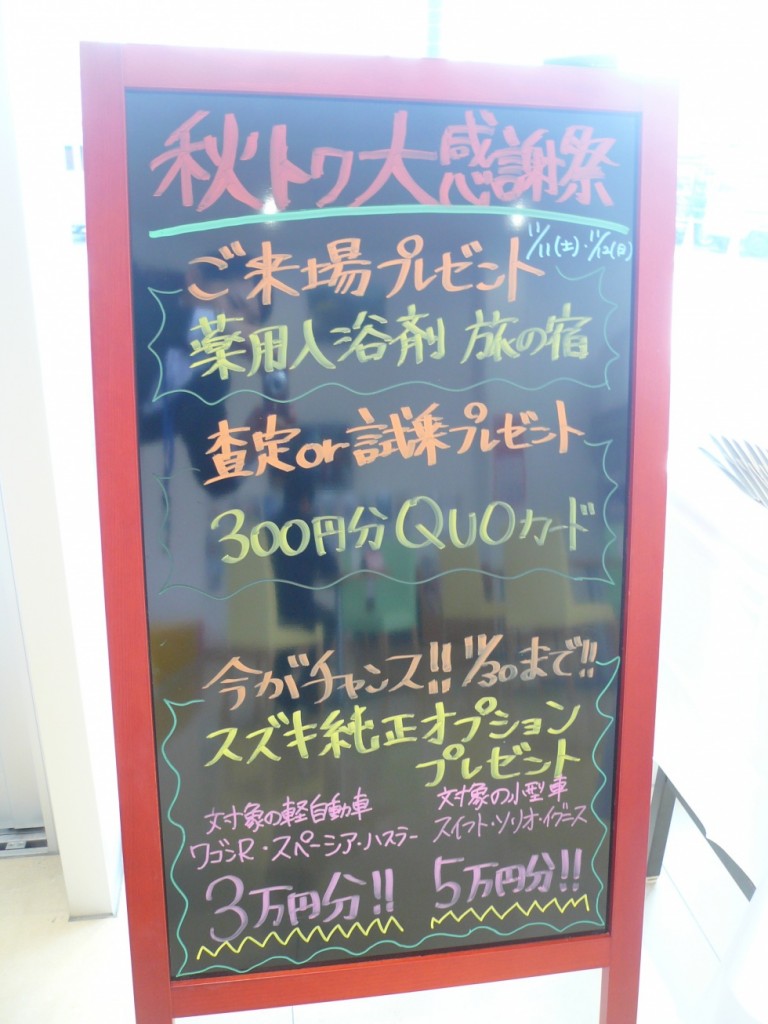 秋トク大感謝祭
11/11(土)・11/12(日)
ご来場プレゼント
薬用入浴剤 旅の宿
査定or試乗プレゼント
300円分QUOカード
今がチャンス!! 11/30まで!!
スズキ純正オプション
プレゼント
対象の軽自動車
ワゴンR・スペーシア・ハスラー
3万円分!!
対象の小型車
スイフト・ソリオ・イグニス
5万円分!!